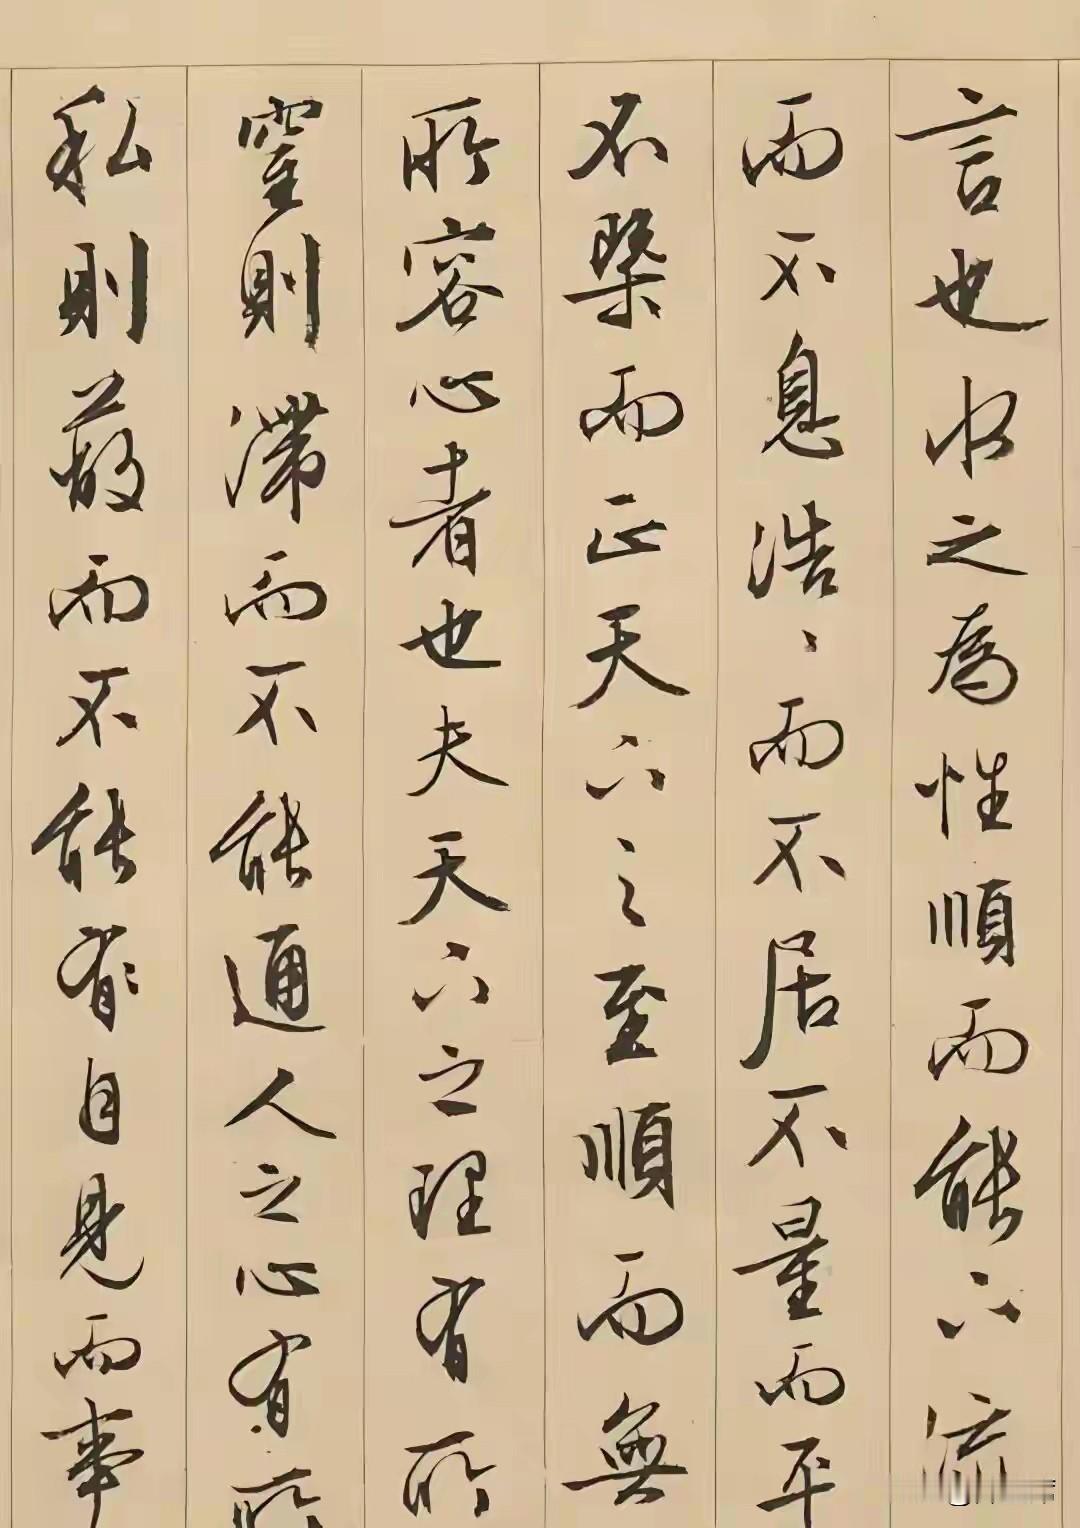 言也水之為性順而能下流
而不息浩〻而不居不量而平
不槩而正天下之至順而無
所容心者也夫天下之理有所
窒則滯而不能通人之心有所
私則蔽而不能有自見而事